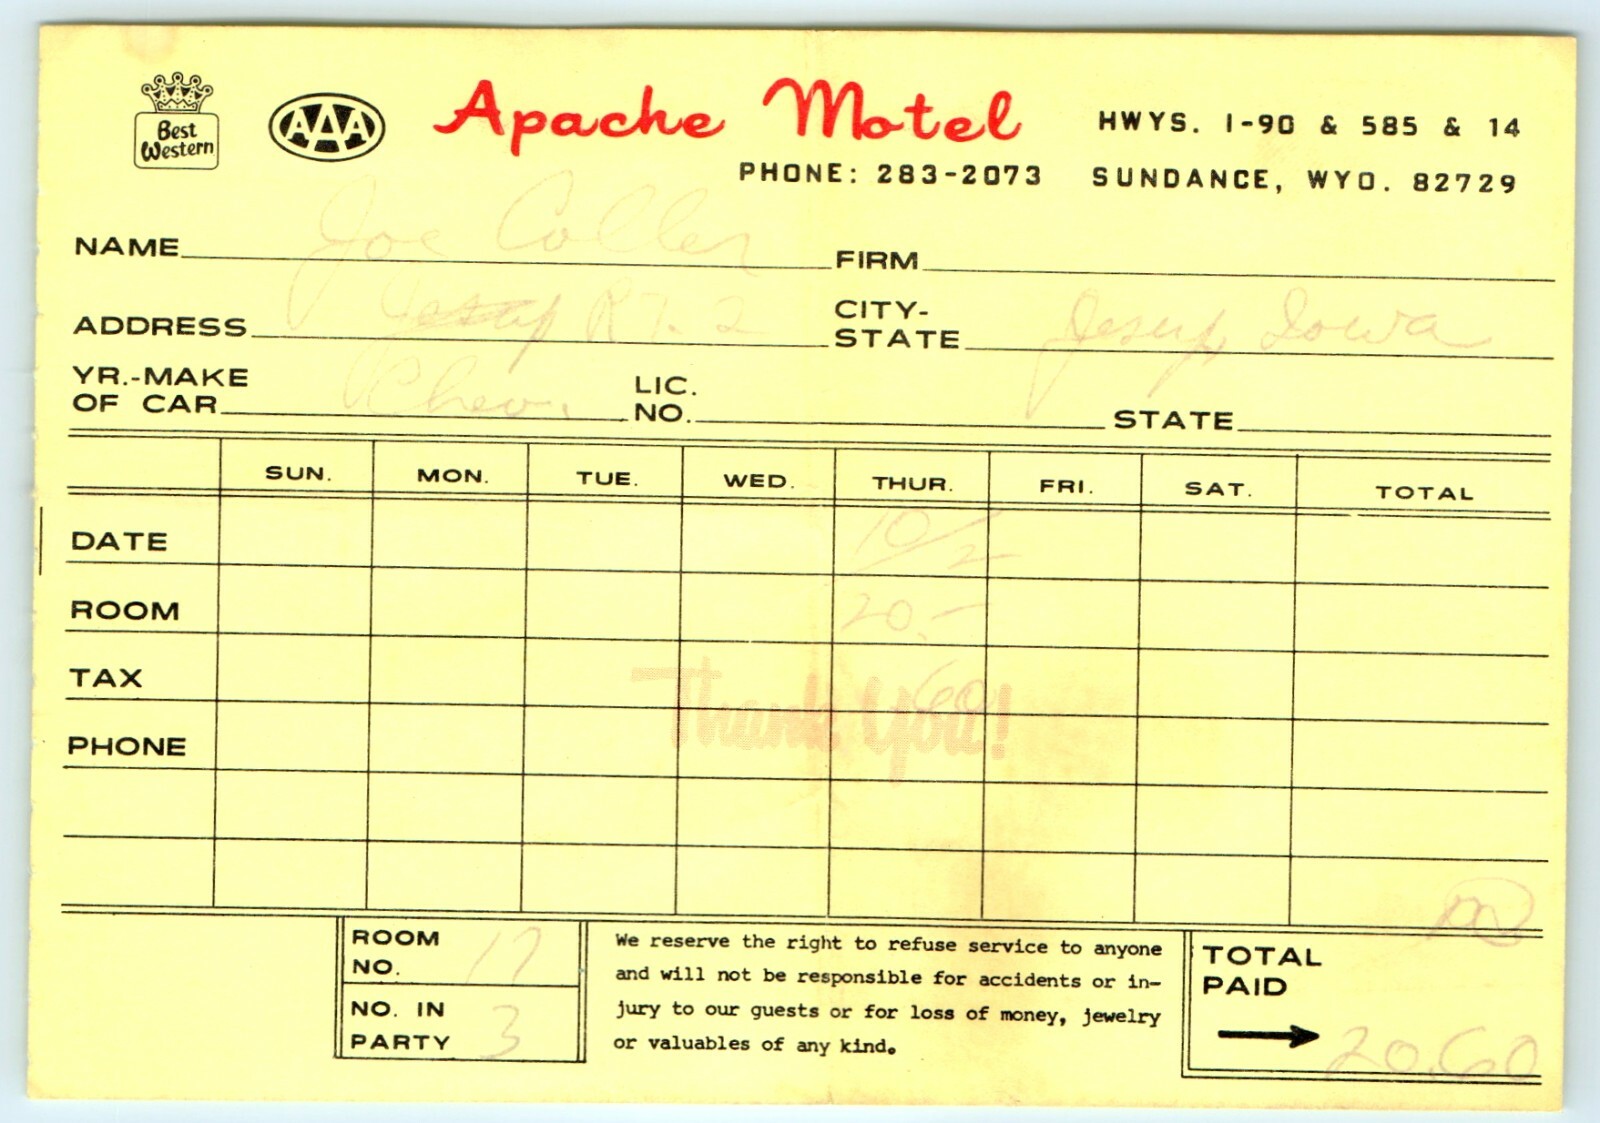 Best Western
AAA
Apache Motel
HWYS. I-90 & 585 & 14
PHONE: 283-2073 SUNDANCE, WYO. 82729
NAME Joe Coller FIRM
ADDRESS Jesup RT. 2 CITY-STATE Jesup Iowa
YR.-MAKE OF CAR Chev. LIC. NO. STATE
SUN. MON. TUE. WED. THUR. FRI. SAT. TOTAL
DATE 10/2
ROOM 20.-
TAX 60
PHONE
Thank You!
ROOM NO. 17
NO. IN PARTY 3
We reserve the right to refuse service to anyone
and will not be responsible for accidents or in-
jury to our guests or for loss of money, jewelry
or valuables of any kind.
TOTAL PAID 20.60